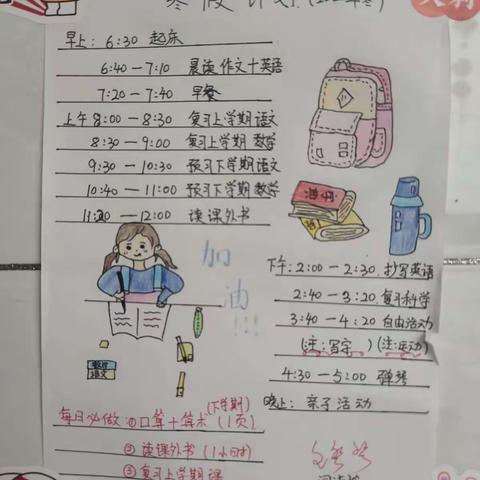 寒假计划
早上: 6:30 起床
6:40 — 7:10 晨读作文+英语
7:20 — 7:40 早餐
上午 8:00 — 8:30 复习上学期语文
8:30 — 9:00 复习上学期数学
9:30 — 10:30 预习下学期语文
10:40 — 11:00 预习下学期数学
11:20 — 12:00 读课外书
加油!!!
语文
下午: 2:00 — 2:30 抄写英语
2:40 — 3:20 复习科学
3:40 — 4:20 自由活动
(注:写字) (注:运动)
4:30 — 5:00 弹琴
晚上: 亲子活动
(下学期)
每日必做: ①口算+算术 (1页)
② 读课外书 (1小时)
③ 复习上学期课